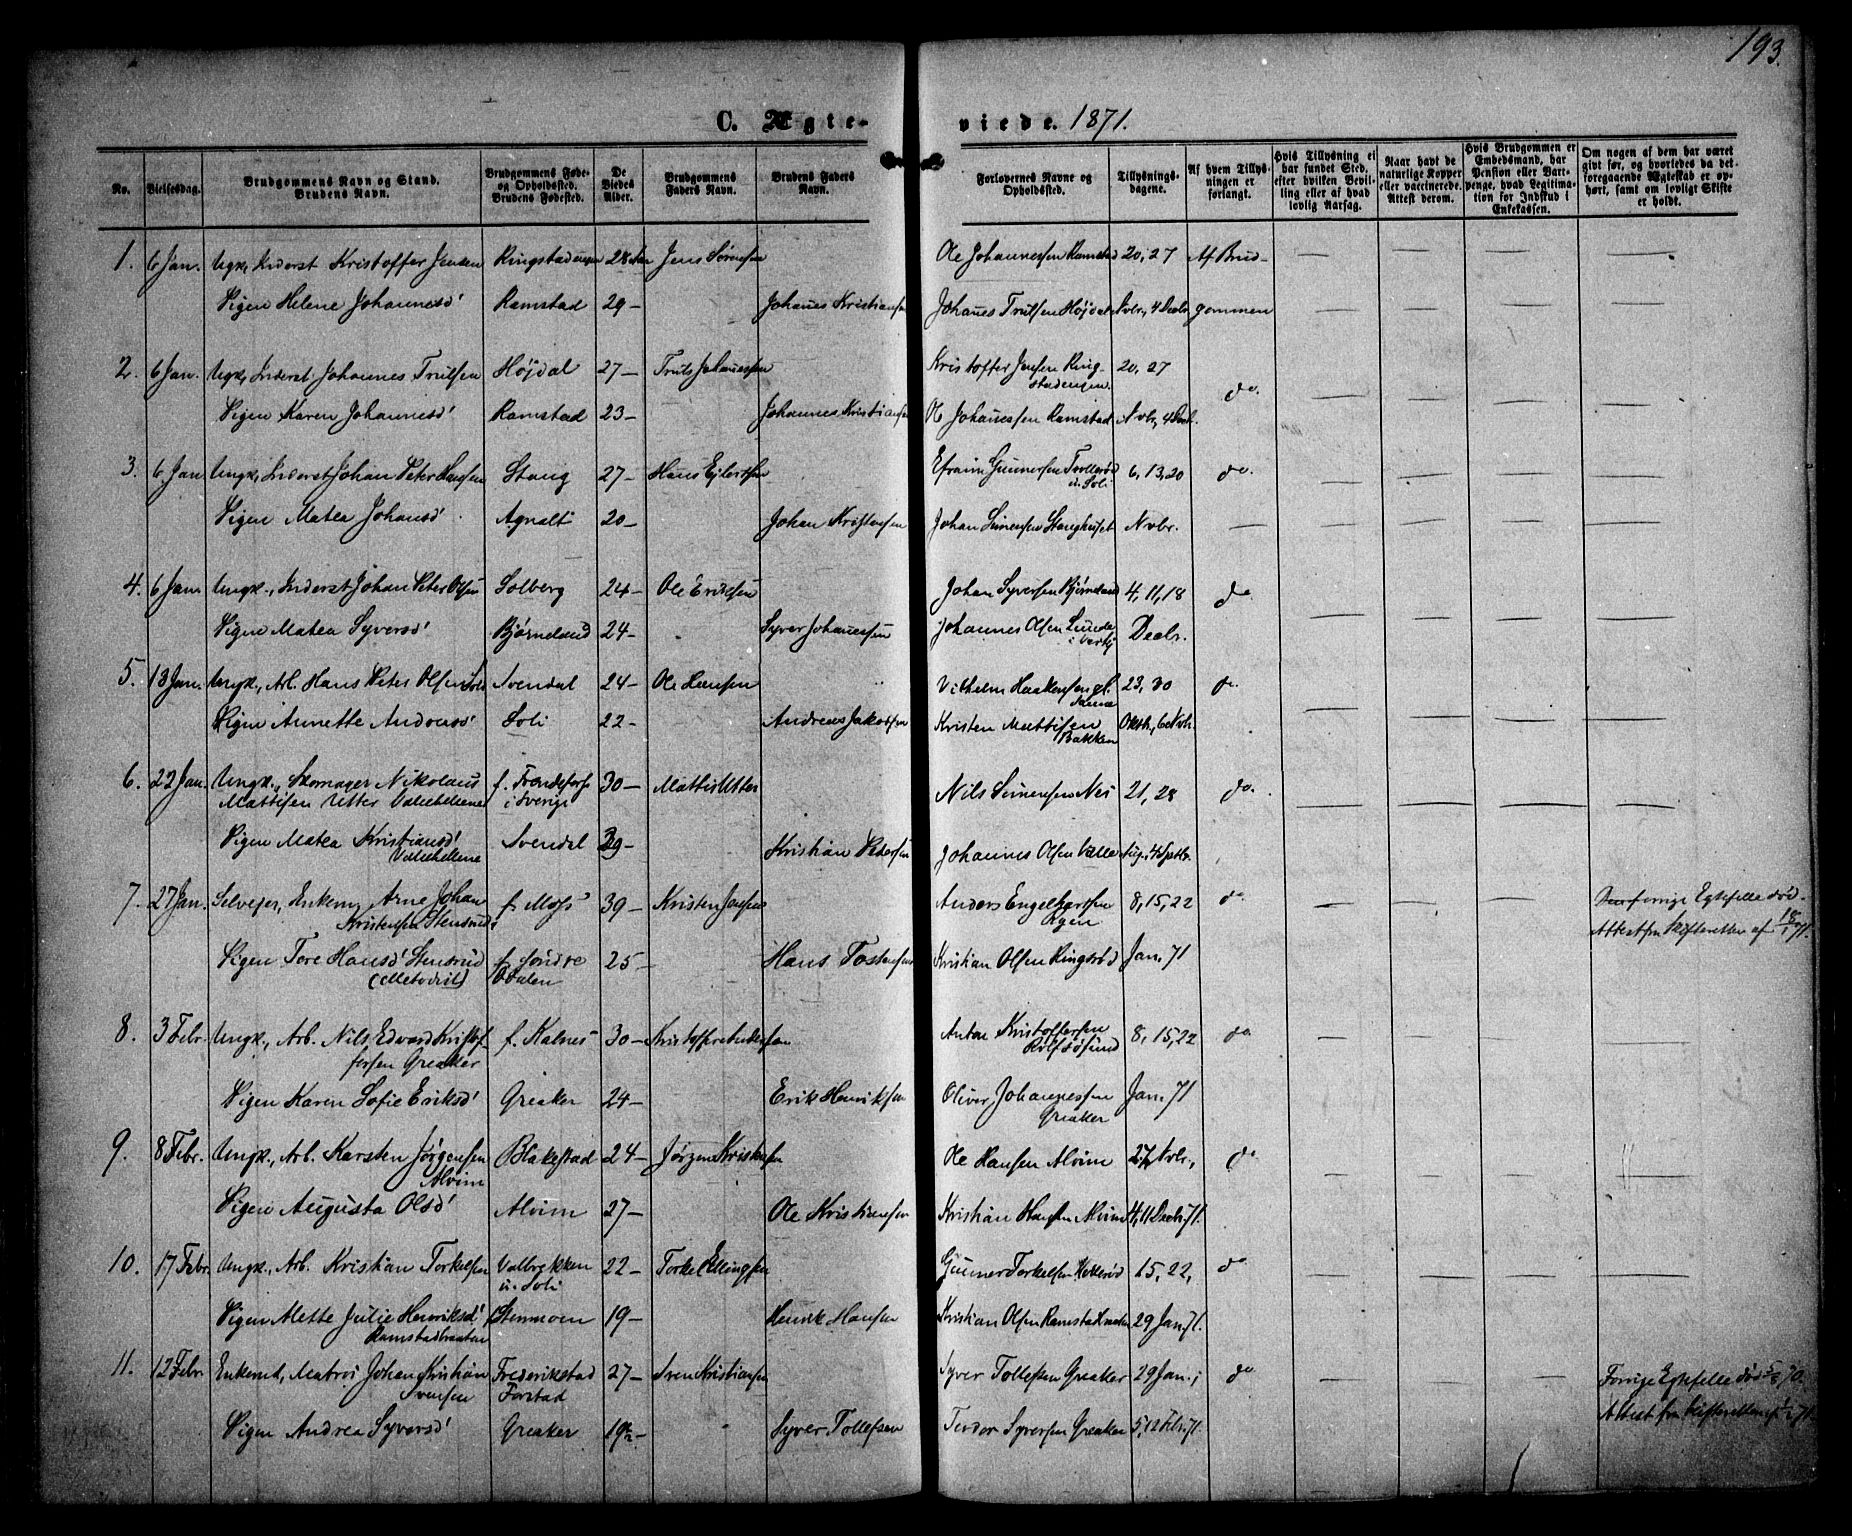 193.
C. Ægteviede. 1871.
No.
Vielsesdag.
Brudgommens Navn og Stand.
Brudens Navn.
Brudgommens Føde- og Opholdssted.
Brudens Fødested.
De Viedes Alder.
Brudgommens Faders Navn.
Brudens Faders Navn.
Forlovernes Navne og Opholdssted.
Tillysnings- dagene.
Af hvem Tillys- ningen er forlangt.
Hvis Tillysning ei har fundet Sted, efter hvilken Bevil- ling eller af hvad lovlig Aarsag.
Naar havt de naturlige Kopper eller vaccinerede. Attest derom.
Hvis Brudgommen er Embedsmand, har Pension eller Vart- penge, hvad Legitima- tion for Indskud i Enkekassen.
Om nogen af dem har været gift før, og hvorledes da det foregaaende Ægteskab er op- hørt, samt om lovligt Skifte er holdt.
1. 6 Jan. Ungk., Inderst Kristoffer Jensen Ringstadengen 28 Jens Sørensen Ole Johannessen Ramstad 20, 27 Af Brud-
Pigen Helene Johannesd' Ramstad 29- Johanes Kristiansen Johanes Trulsen Højdal Nvbr, 4 Decbr gommen
2. 6 Jan. Ungk., Inderst Johannes Trulsen Højdal 27- Truls Johanessen Kristoffer Jensen Ring- 20, 27
stadengen do.
Pigen Karen Johannesd' Ramstad 23- Johannes Kristiansen Ole Johanessen Ramstad Nvbr, 4 Decb.
3. 6 Jan Ungk., Inderst Johan Peter Hansen Stang 27- Hans Ejlertsen Efraim Gunnersen Trollerød 6, 13, 20 do.
u. Soli
Pigen Matea Johansd' Agnalt 20- Johan Kristensen Johan Simensen Stanghuset Nvbr.
4. 6 Jan Ungk., Inderst Johan Peter Olsen Solberg 24- Ole Eriksen Johan Syversen Bjørneland 4, 11, 18 do.
Pigen Matea Syversd' Bjørneland 24- Syver Johanessen Johannes Olsen Lunde Decbr.
5. 13 Jan. Ungk., Arb. Hans Peter Olsen Soli Svendal 24- Ole Hansen Vilhelm Haakensen 23, 30 do.
Pigen Annette Andreasd' Soli 22- Andreas Jakobsen Kristen Mattisen Oktb, 6 Nvb.
Bakken
6. 22 Jan. Ungk., Skomager Nikolaus f. 30- Mattis Utter Nils Simensen Nes 21, 28 do.
Mattisen Utter i Sverige
Pigen Matea Kristiansd' Svendal 39- Kristian Pedersen Johannes Olsen Valle Aug, 4 Septb.
7. 27 Jan. Selvejer, Enkem, Arne Johan f. Moss 39- Kristen Jensen Anders Engelbertsen 8, 15, 22 do
Kristensen Stensrud Rgen forrige Egtefelle død.
Attest fra Skifteretten af 18/1 71.
Pigen Tore Hansd' Stensrud f. Søndre 25- Hans Tostensen Kristian Olsen Ringsrød Jan. 71
(Metodist) Odalen
8. 3 Febr. Ungk., Arb. Nils Edvard Kristof- f. Kalnes 30- Kristoffer Andersen Anton Kristoffersen 8, 15, 22 do
fersen Greaker Rolfsøsund
Pigen Karen Sofie Eriksd' Greaker 24- Erik Henriksen Oliver Johannessen Jan. 71
Greaker
9. 8 Febr. Ungk., Arb. Karsten Jørgensen Blakestad 24- Jørgen Kristensen Ole Hansen Alvim 27 Nvbr, do
Alvim
Pigen Augusta Olsd' Alvim 27- Ole Kristiansen Kristian Hansen Alvim 4, 11 Decbr. 71.
10. 17 Febr. Ungk., Arb. Kristian Torkelsen Valbrekken 22- Torkel Ellingsen Gunner Torkelsen 15, 22, do
u. Soli
Pigen Mette Julie Henriksd' Stenmoen 19- Henrik Hansen Kristian Olsen 29 Jan. 71.
Ramstadbraaten
11. 12 Febr Enkemd, Matros Johan Kristian Frederikstad 27- Sven Kristiansen Syver Tollefsen Greaker 29 Jan., do
Svensen Forstad Forrige Egtefelle død 5/8 70.
Pigen Andrea Syversd' Greaker 19½ - Syver Tollefsen Teodor Syversen Greaker 5, 12 Feb. 71. Attest fra Skifteretten 71.